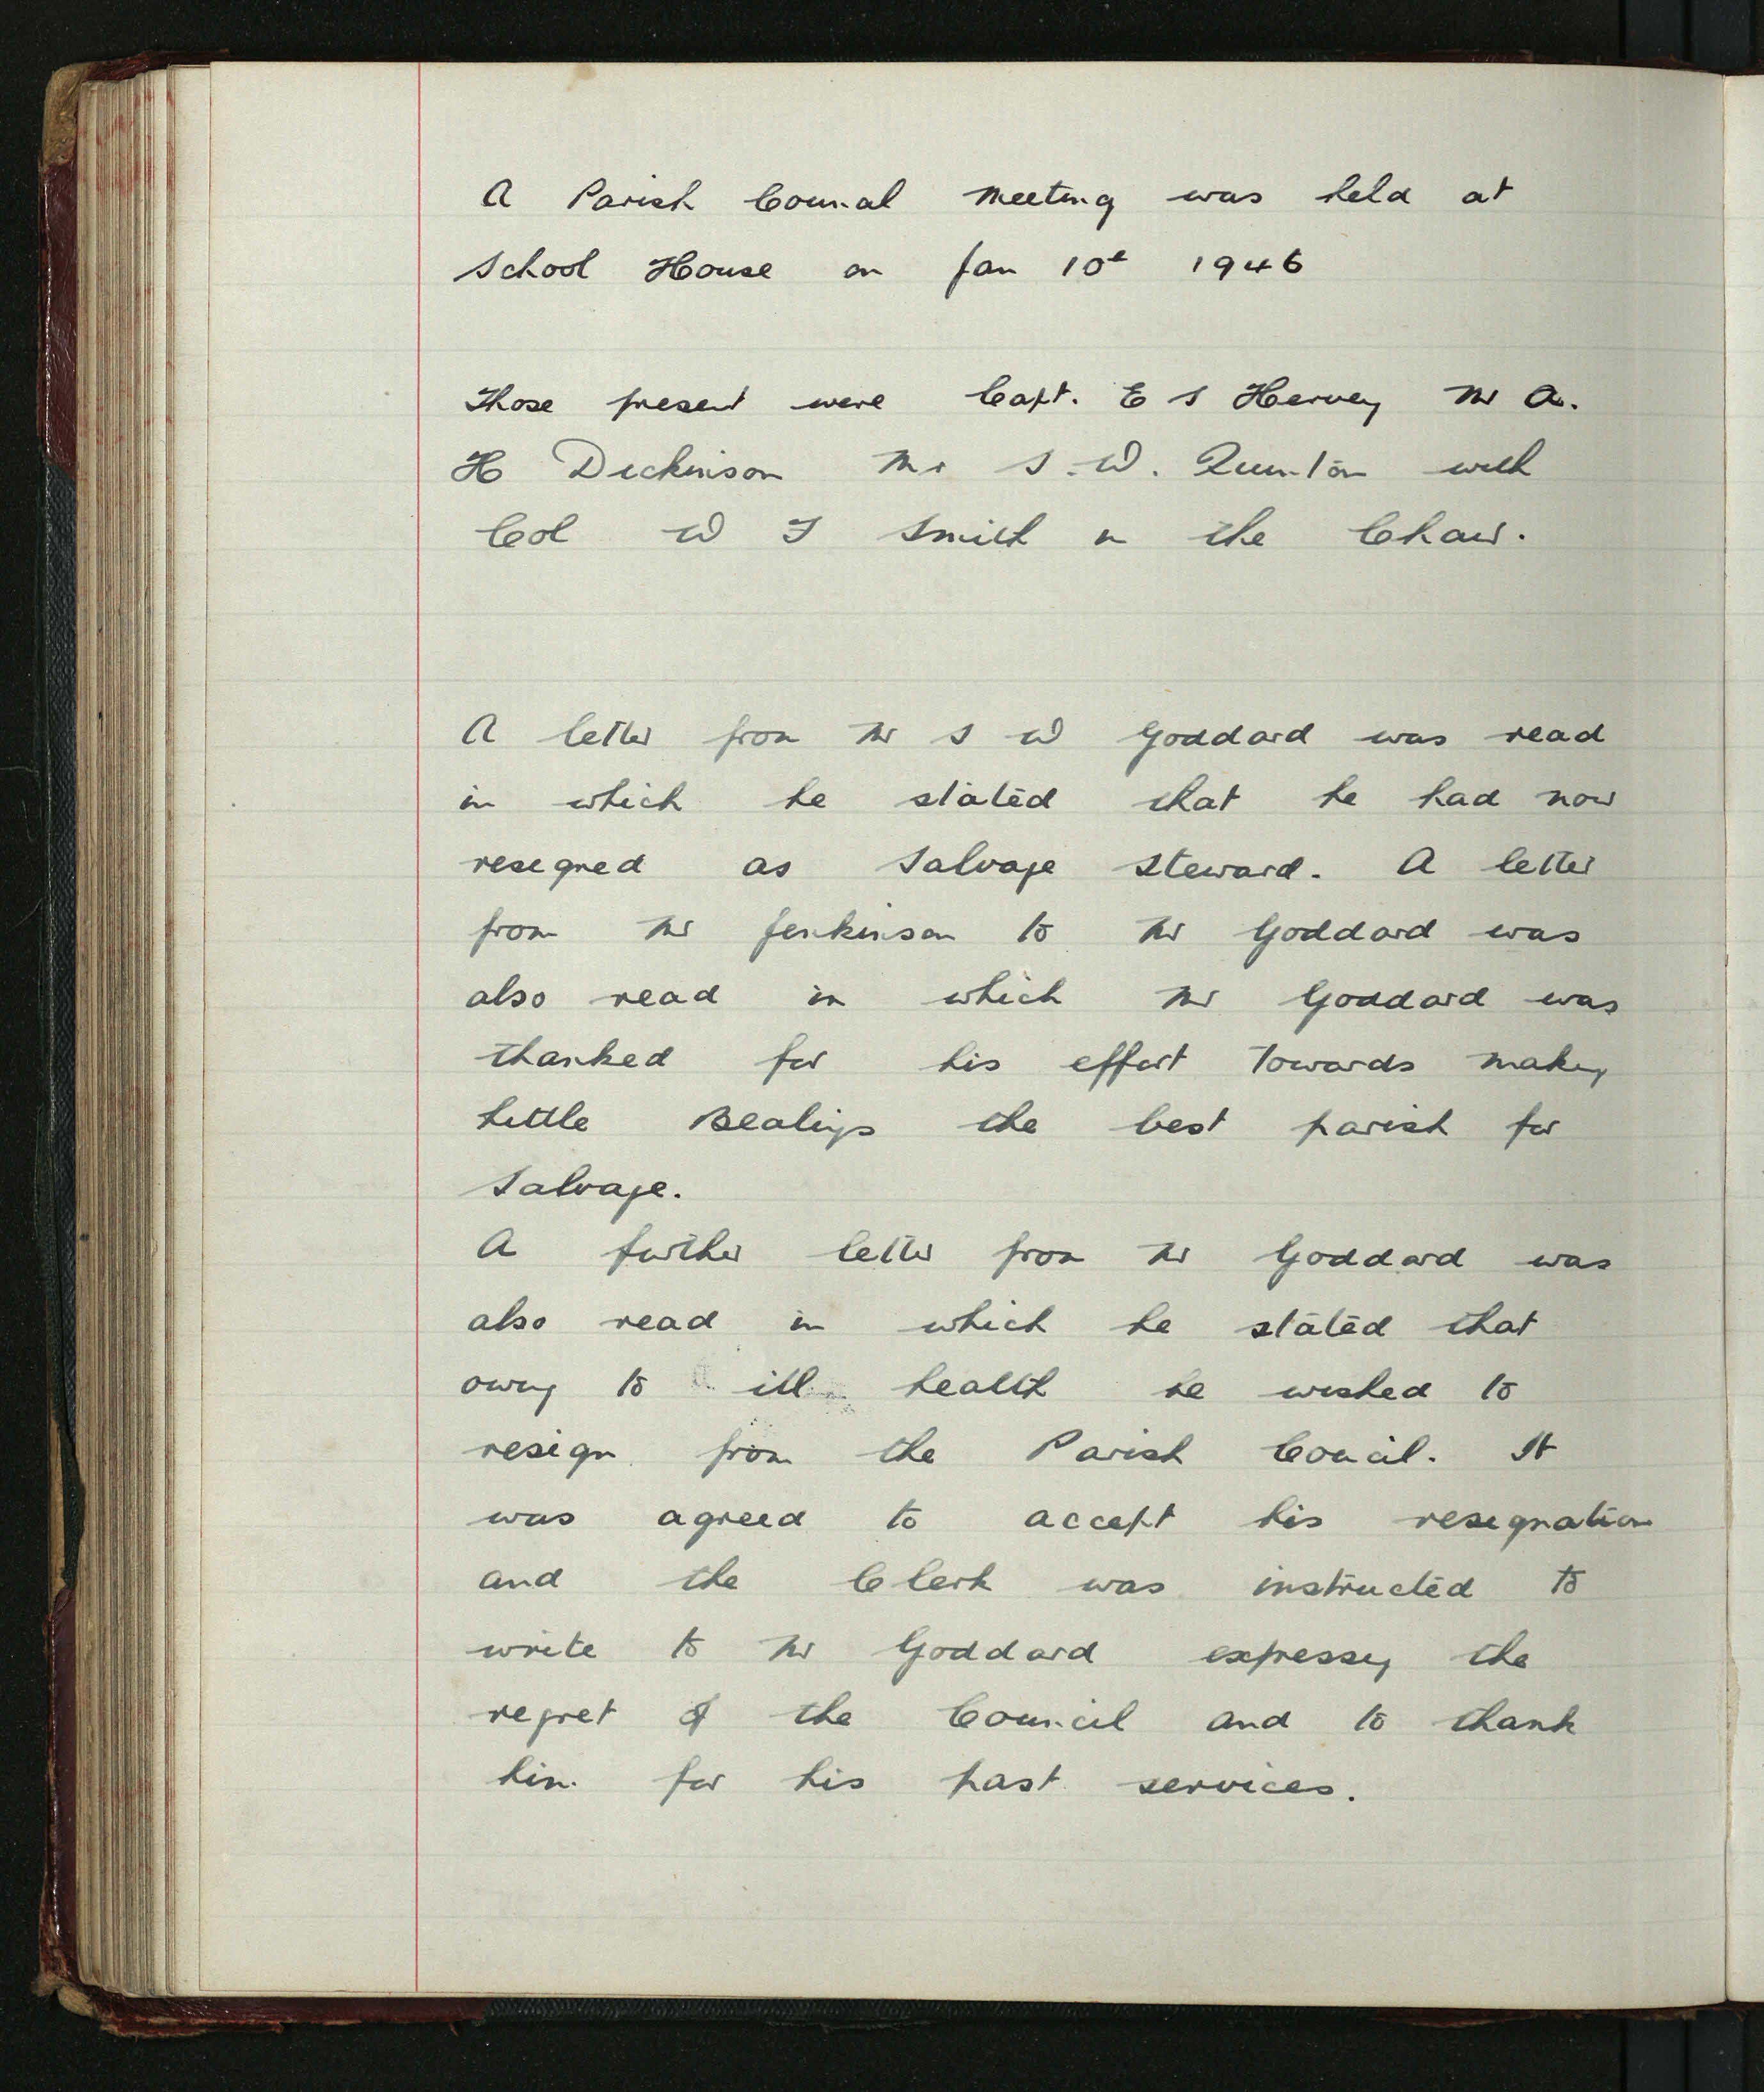 A Parish Council Meeting was held at
School House on Jan 10th 1946
Those present were Capt. E S Hervey Mr A.
H Dickinson Mr S. W. Quinton with
Col W T Smith in the Chair.
A letter from Mr S W Goddard was read
in which he stated that he had now
resigned as Salvage Steward. A letter
from Mr Jenkinson to Mr Goddard was
also read in which Mr Goddard was
thanked for his effort towards making
Little Bealings the best parish for
Salvage.
A further letter from Mr Goddard was
also read in which he stated that
owing to ill health he wished to
resign from the Parish Council. It
was agreed to accept his resignation
and the Clerk was instructed to
write to Mr Goddard expressing the
regret of the Council and to thank
him for his past services.